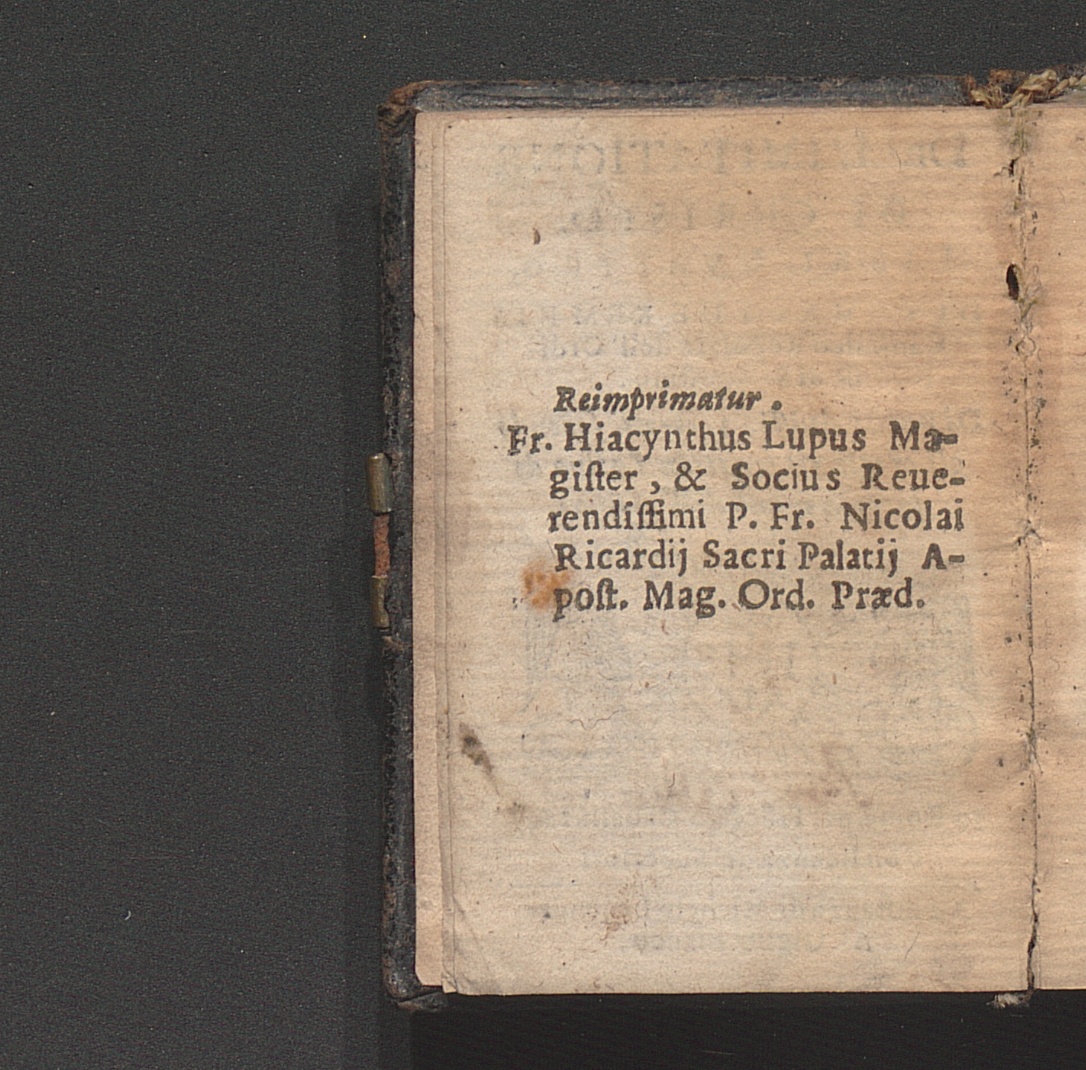 Reimprimatur.
Fr. Hiacynthus Lupus Ma-
giſter, & Socius Reue-
rendiſſimi P. Fr. Nicolai
Ricardij Sacri Palatij A-
poſt. Mag. Ord. Præd.